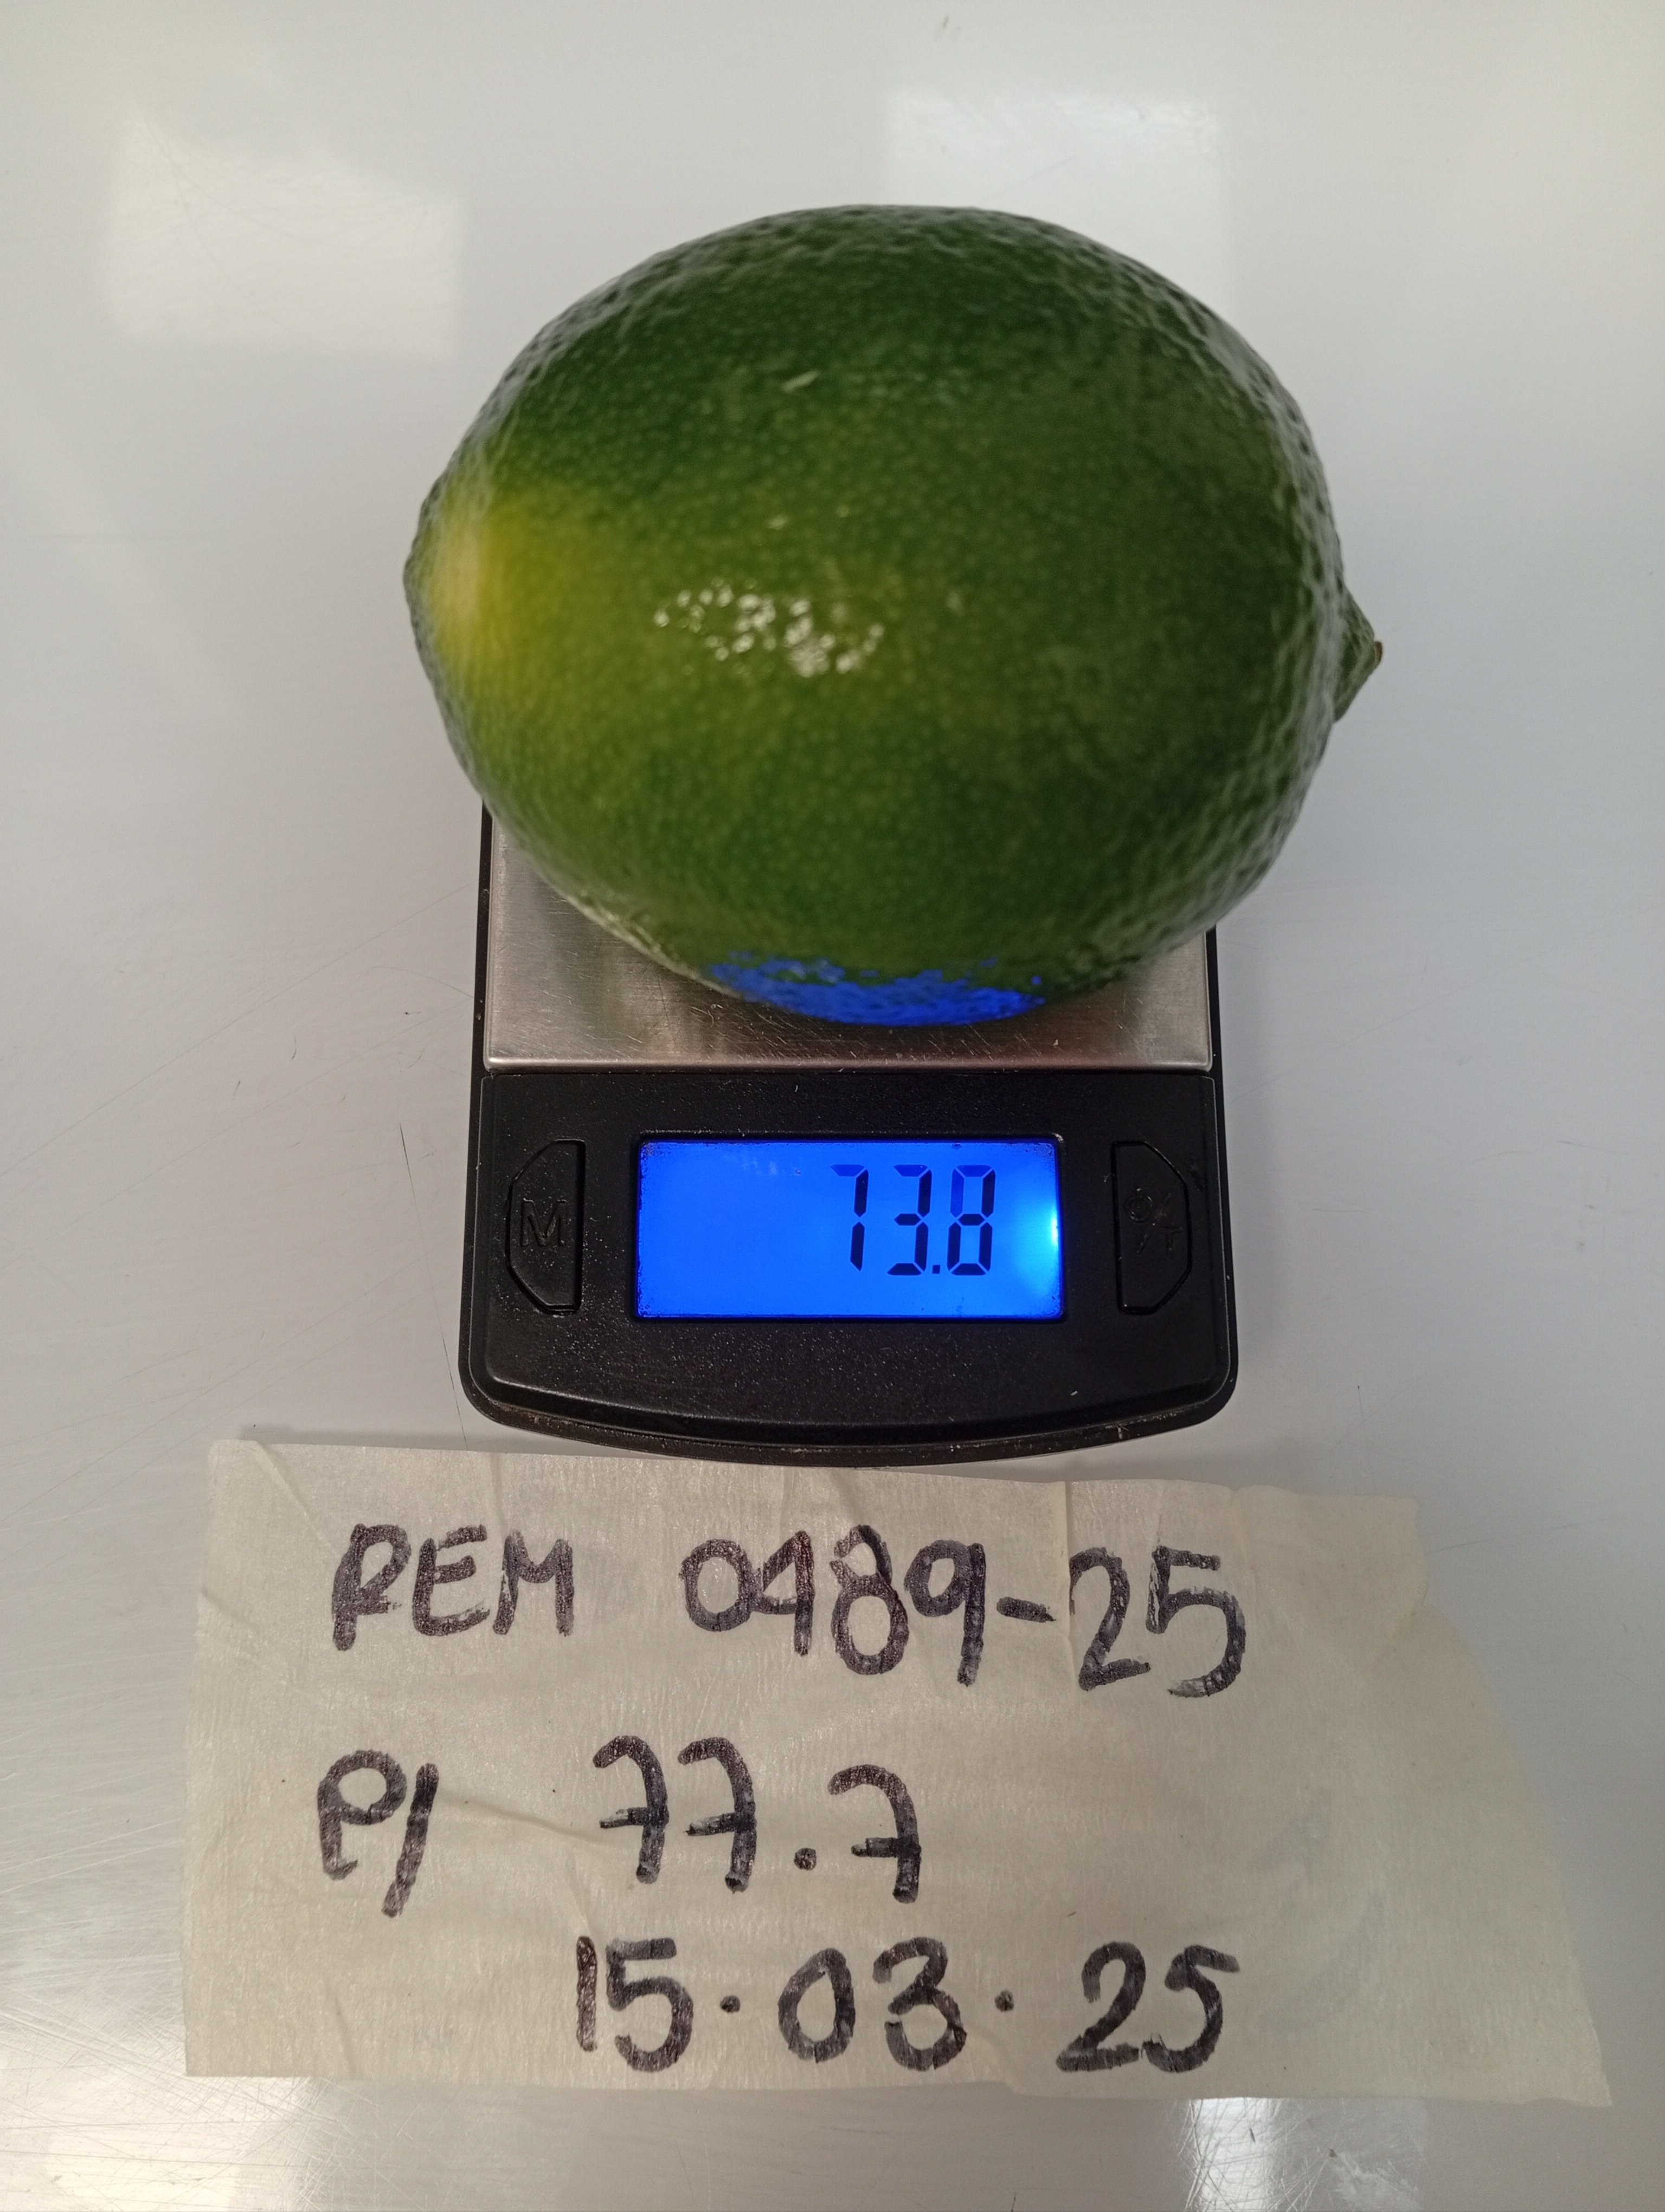 73.8
M
REM 0489-25
P/ 77.7
15.03.25